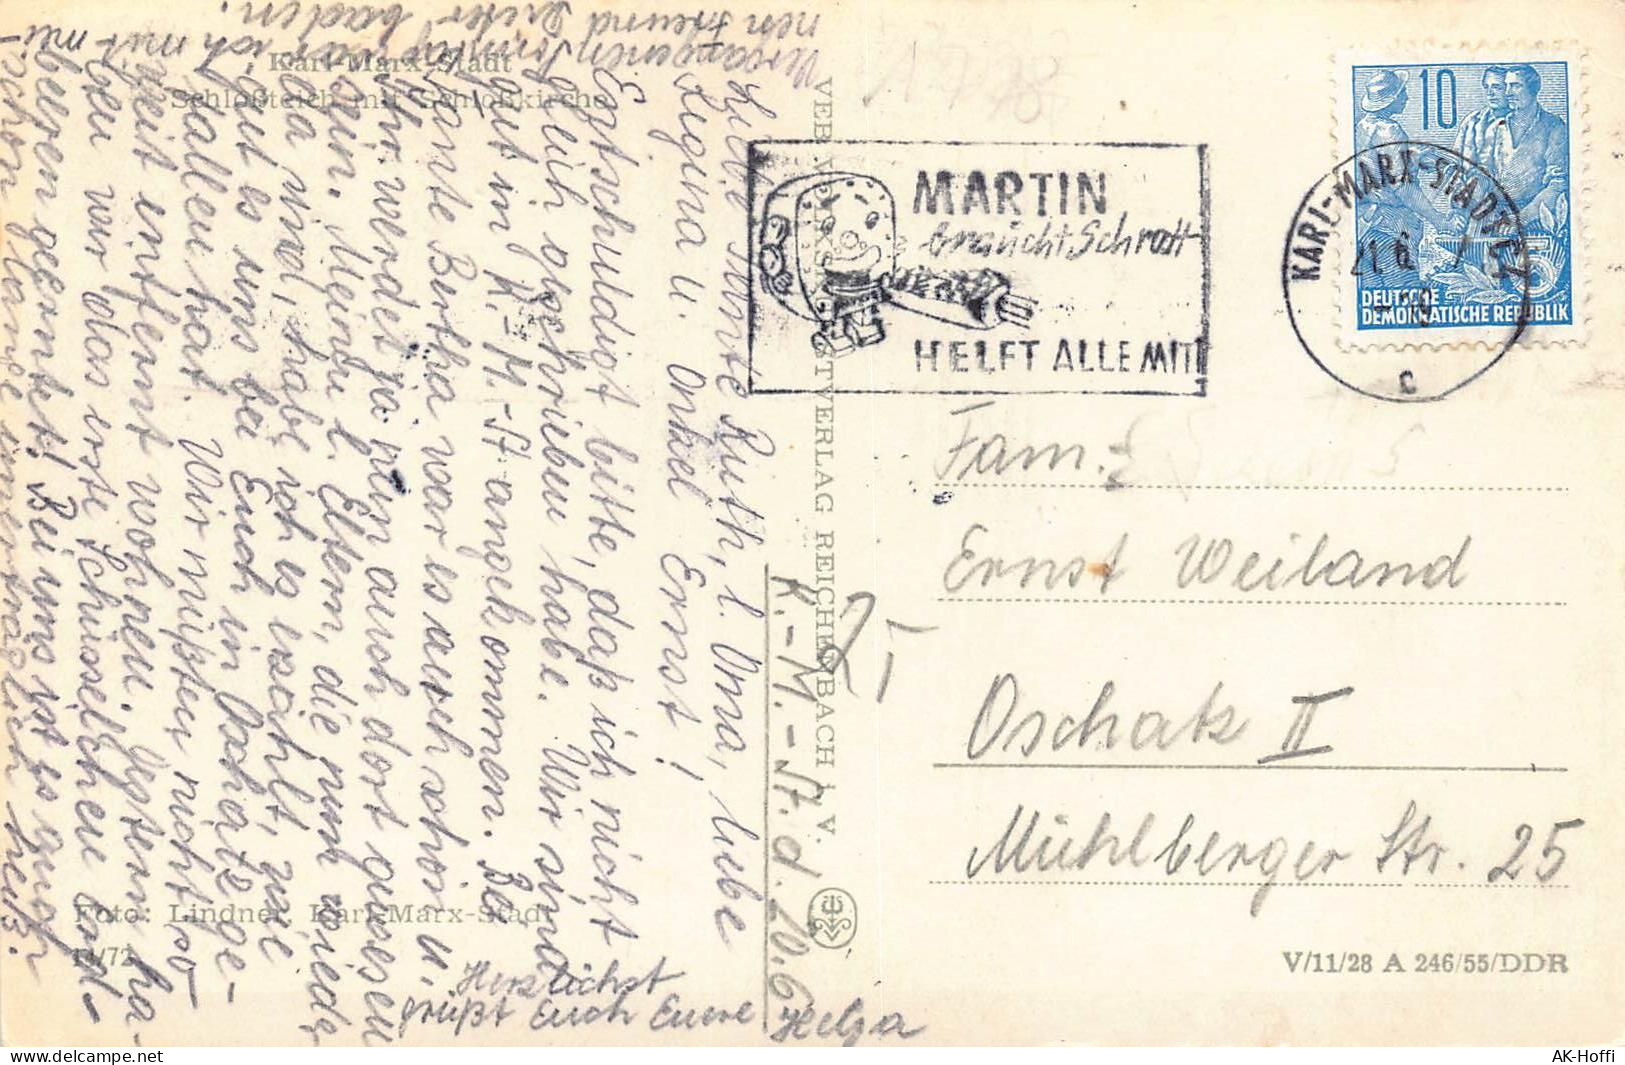 Karl-Marx-Stadt
Schloßteich mit Schloßkirche
K.-M.-St. d. 20.6.
Liebe Tante Ruth, l. Oma, liebe
Regina u. Onkel Ernst!
Entschuldigt bitte, daß ich nicht
gleich geschrieben habe. Wir sind
gut in K.-M.-St angekommen. Bei
Tante Bertha war es auch schön u.
Ihr werdet ja nun auch dort gewesen
sein. Meinen l. Eltern, die nun wieder
da sind, habe ich es erzählt, wie
gut es uns bei Euch in Oschatz ge-
fallen hat. Wir müßten nicht so
weit entfernt wohnen. Gestern ha-
ben wir das erste Schüsselchen Erd-
beeren geerntet! Bei uns ist es auch
schon lange unerträglich heiß.
Vergangenen Sonntag war ich mit mei-
nen Freund Dieter baden.
Herzlichst
grüßt Euch Eure Helga
Foto: Lindner, Karl-Marx-Stadt
14/72
VEB VOLKSKUNSTVERLAG REICHENBACH I. V.
MARTIN
braucht Schrott
HELFT ALLE MIT!
KARL-MARX-STADT
21.6.
c
10
DEUTSCHE
DEMOKRATISCHE REPUBLIK
5
2,-
Fam.
Ernst Weiland
Oschatz II
Mühlberger Str. 25
V/11/28 A 246/55/DDR
AK-Hoffi